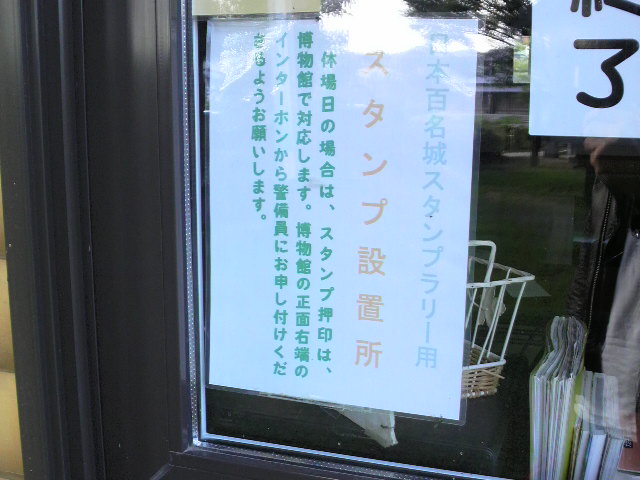 日本百名城スタンプラリー用
スタンプ設置所
休場日の場合は、スタンプ押印は、
博物館で対応します。博物館の正面右端の
インターホンから警備員にお申し付けくだ
さるようお願いします。
了